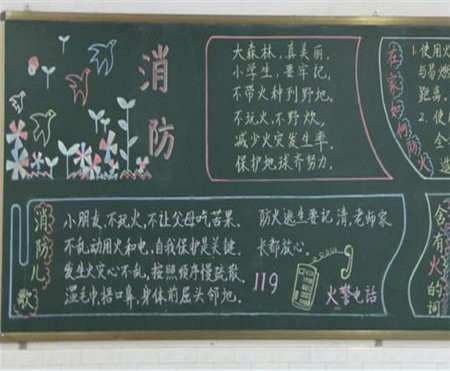 消防
大森林,真美丽.
小学生,要牢记.
不带火种到野地.
不玩火,不野炊.
减少火灾发生率.
保护地球齐努力.
在家如何防火
1.使用火
与易燃
距离.
2.使
全
选
消防儿歌
小朋友,不玩火,不让父母吃苦果.
不乱动用火和电,自我保护是关键.
发生火灾心不乱,按照顺序慢疏散.
湿毛巾捂口鼻,身体前屈头邻地.
防火逃生要记清,老师家
长都放心.
119
火警电话
含有火的词